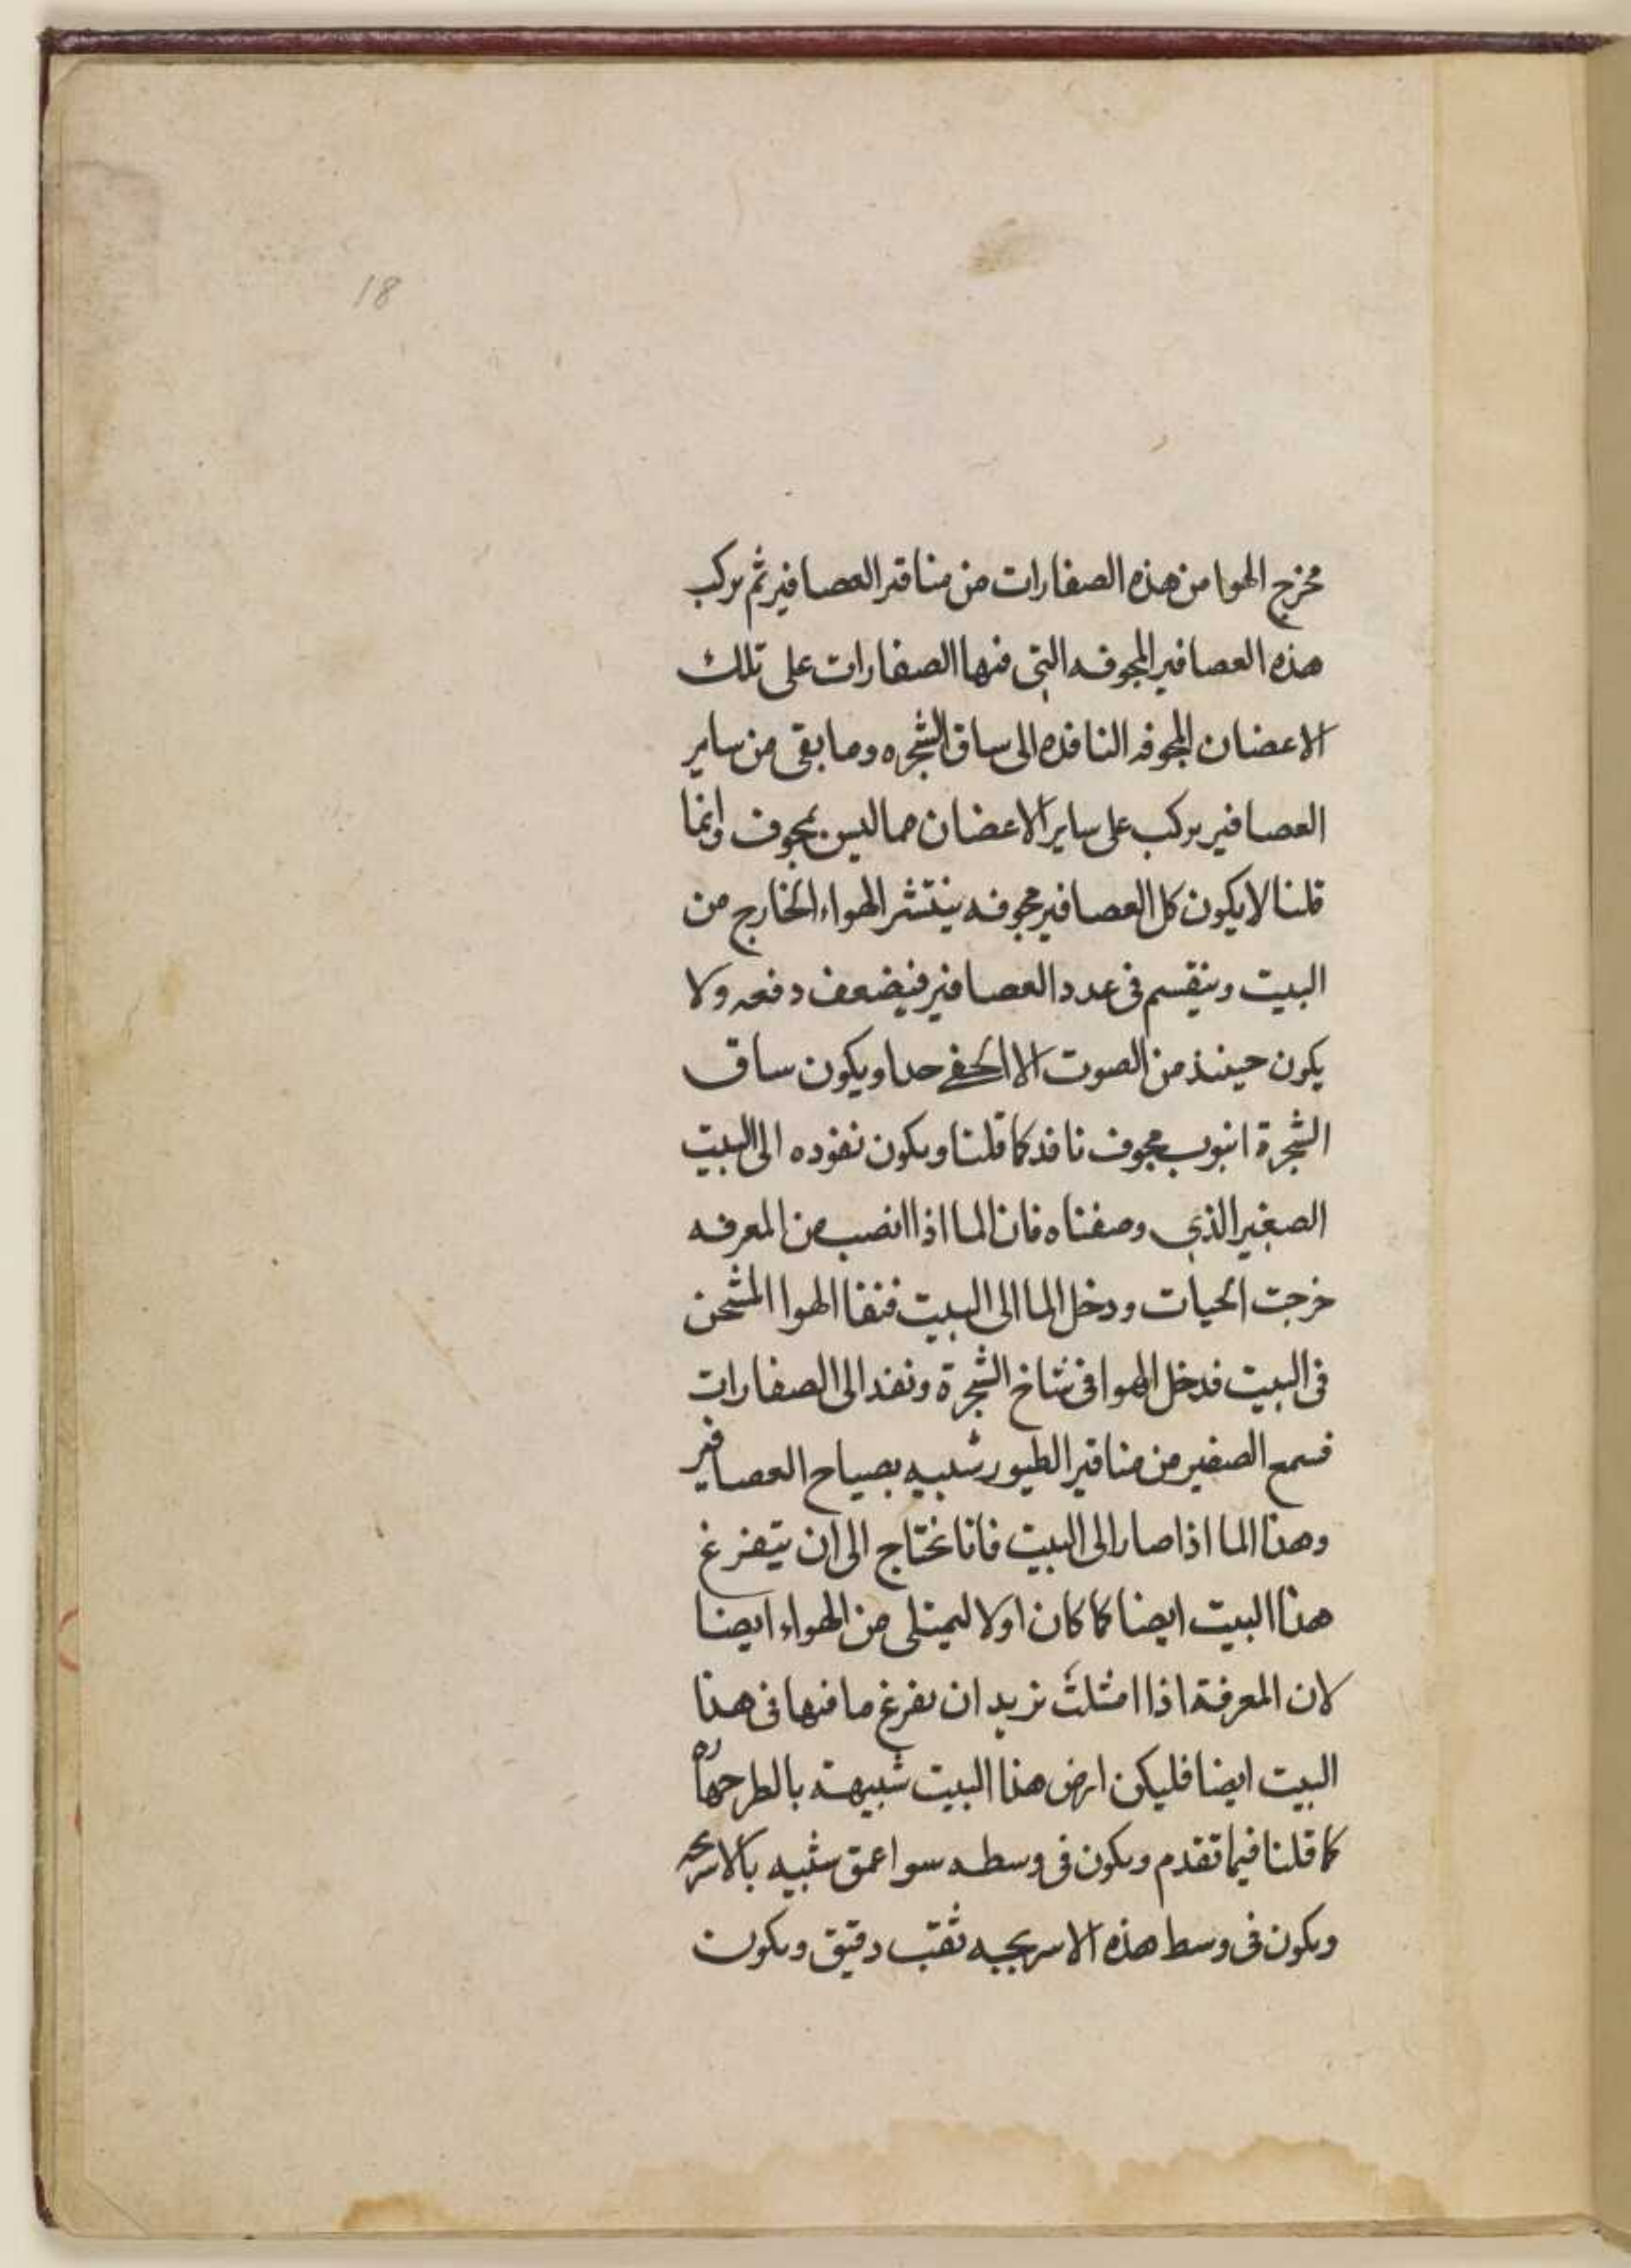 18
مخرج الهوا من هذه الصفارات من مناقير العصافير ثم يركب
هذه العصافير المجوفه التي فيها الصفارات على تلك
الاغصان المجوفه النافذه الى ساق الشجره وما بقى من ساير
العصافير يركب على ساير الاغصان مما ليس بمجوف وانما
قلنا لا يكون كل العصافير مجوفه ينتشر الهواء الخارج من
البيت وينقسم في عدد العصافير فيضعف دفعه ولا
يكون حينئذ من الصوت الا الخفي جدا ويكون ساق
الشجرة انبوب مجوف نافذ كما قلنا ويكون نفوذه الى البيت
الصغير الذي وصفناه فان الما اذا انصب من المعرفه
خرجت الحيات ودخل الما الى البيت فنفا الهوا المشحن
في البيت فدخل الهوا في شاخ الشجرة ونفد الى الصفارات
فسمع الصفير من مناقير الطيور شبيه بصياح العصافير
وهذا الما اذا صار الى البيت فانا نحتاج الى ان يتفرغ
هذا البيت ايضا كما كان اولا ليمتلى من الهواء ايضا
لان المعرفة اذا امتلت نريد ان يفرغ ما فيها في هذا
البيت ايضا فليكن ارض هذا البيت شبيهة بالطرجهاره
كما قلنا فيما تقدم ويكون في وسطه سوا عمق شبيه بالاسريجه
ويكون في وسط هذه الاسريجيه ثقب دقيق ويكون